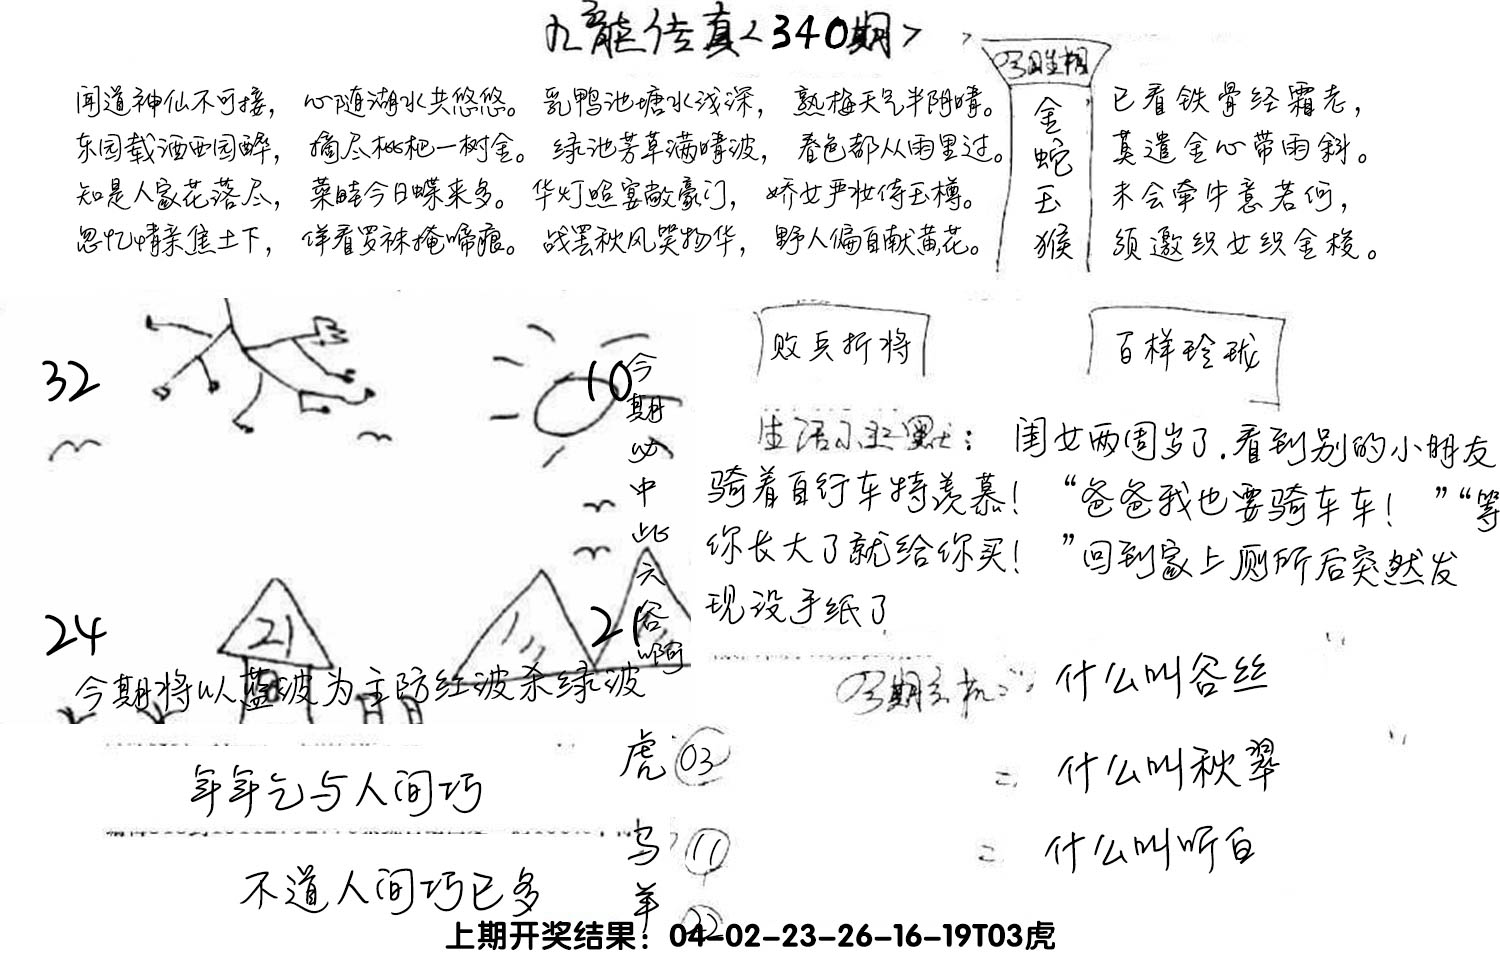 九龍传真<340期>
闻道神仙不可接，心随湖水共悠悠。乳鸭池塘水浅深，熟梅天气半阴晴。
东园载酒西园醉，摘尽枇杷一树金。绿池芳草满晴波，春色都从雨里过。
知是人家花落尽，菜畦今日蝶来多。华灯照宴敞豪门，娇女严妆侍玉樽。
忽忆情亲焦土下，佯看罗袜掩啼痕。战罢秋风笑物华，野人偏自献黄花。
生相
金
蛇
玉
猴
已看铁骨经霜老，
莫遣金心带雨斜。
未会牵牛意若何，
须邀织女织金梭。
32
10
24
21
21
今期必中此六谷啊
今期将以蓝波为主防红波杀绿波
败兵折将
百样玲珑
生活小幽默：闺女两周岁了.看到别的小朋友
骑着自行车特羡慕！“爸爸我也要骑车车！”“等
你长大了就给你买！”回到家上厕所后突然发
现没手纸了
今期玄机：什么叫谷丝
什么叫秋翠
什么叫听白
年年乞与人间巧
不道人间巧已多
虎 03
11
羊 22
上期开奖结果：04-02-23-26-16-19T03虎